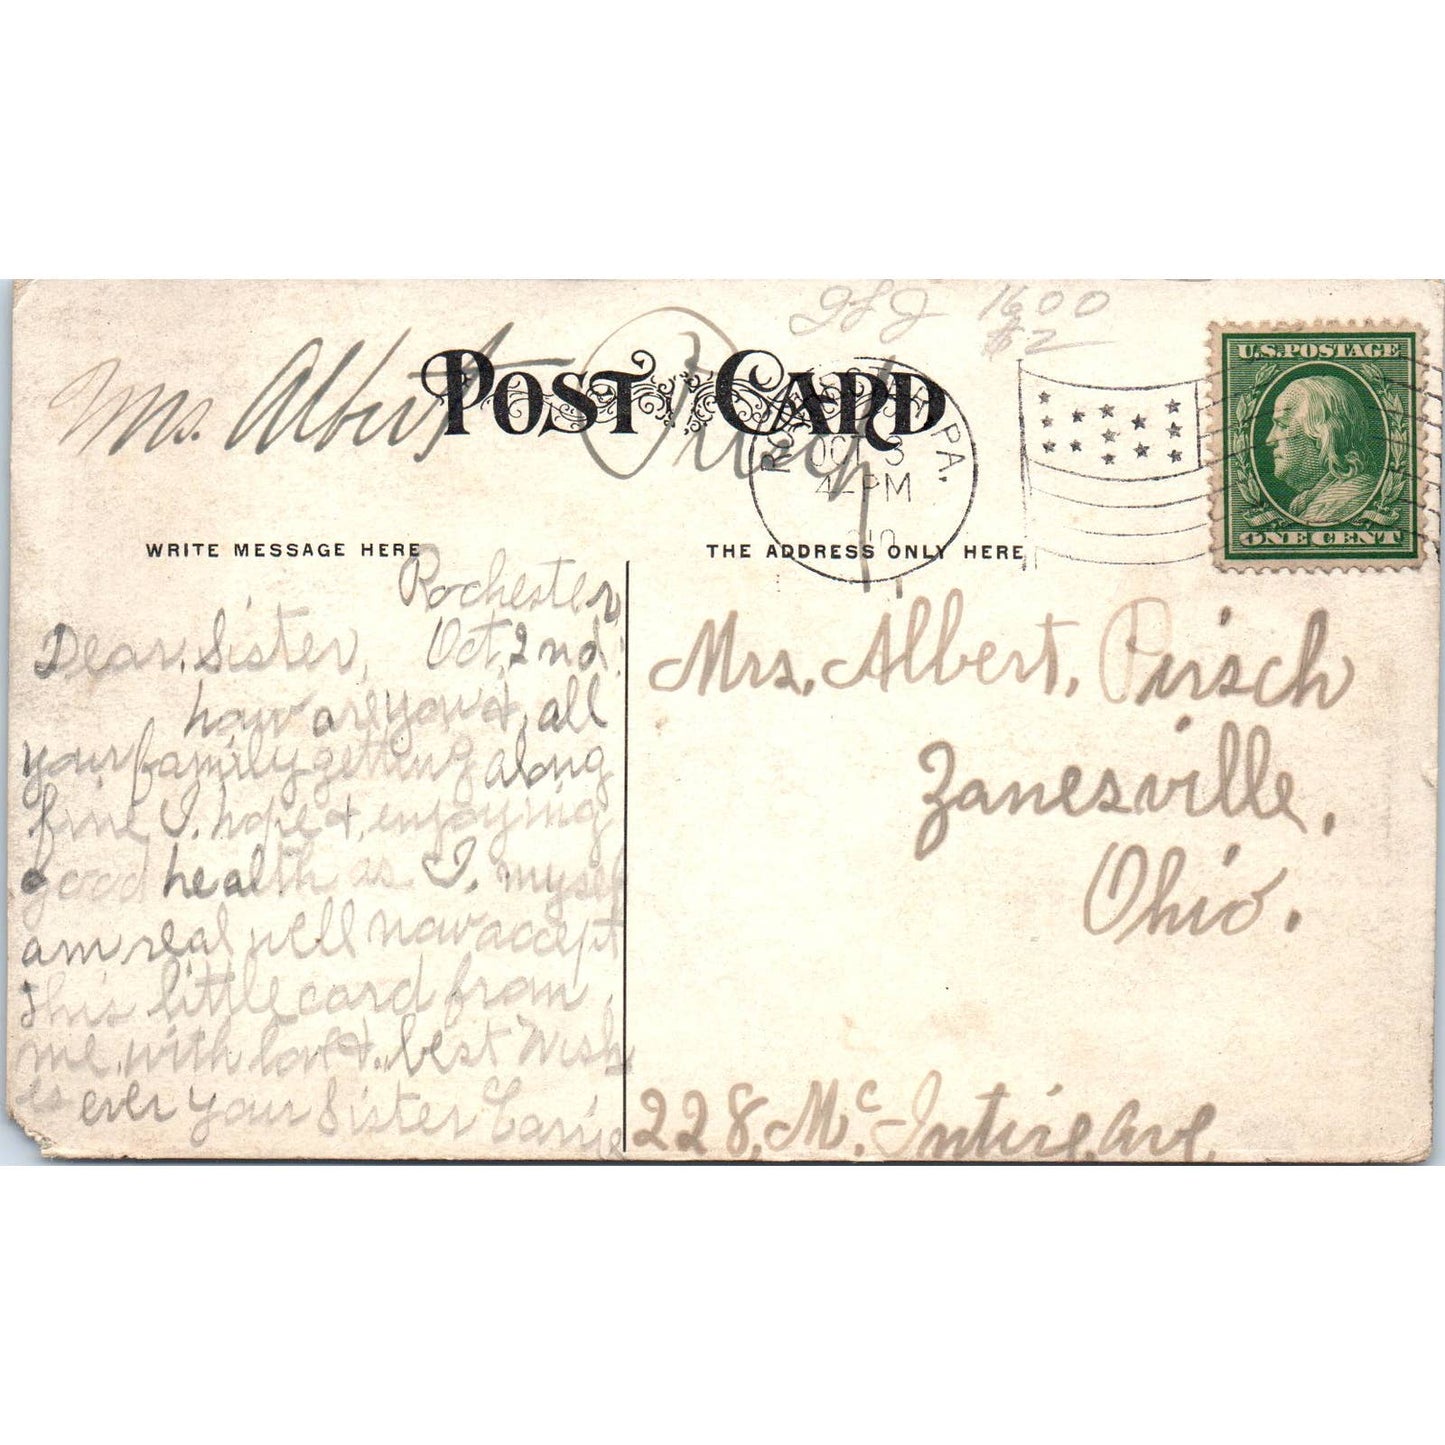 Mrs. Albert Pirsch
POST CARD
1600
$2
ROCHESTER, PA.
OCT 3
4-PM
U.S. POSTAGE
ONE CENT
WRITE MESSAGE HERE
Rochester
Dear, Sister, Oct, 2nd.
how are you &, all
your family getting along
fine I. hope &, enjoying
good health as I. myself
am real well now accept
this little card from
me, with love &., best Wish
es ever your Sister Carrie
THE ADDRESS ONLY HERE
Mrs. Albert. Pirsch
Zanesville,
Ohio.
228, Mc. Intire, Ave,